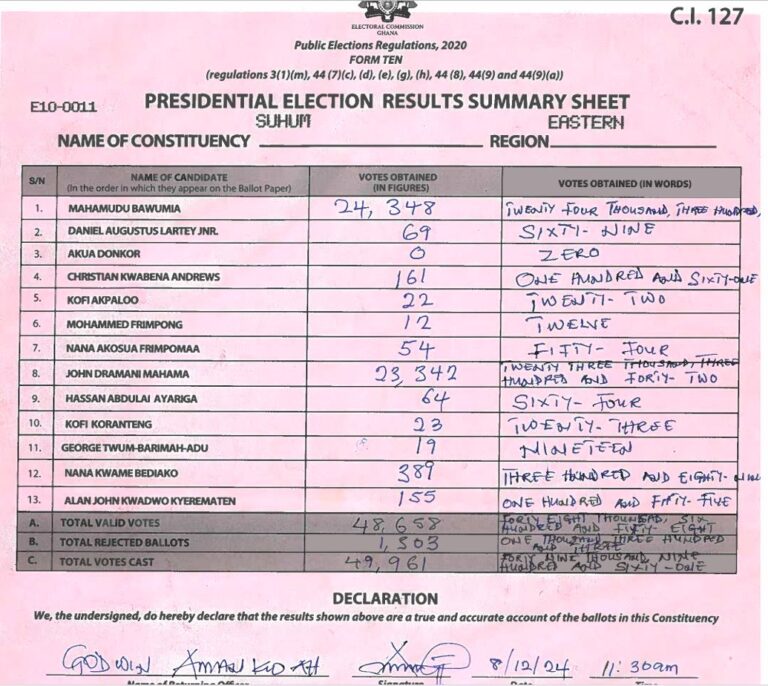 C.I. 127
ELECTORAL COMMISSION
GHANA
Public Elections Regulations, 2020
FORM TEN
(regulations 3(1)(m), 44 (7)(c), (d), (e), (g), (h), 44 (8), 44(9) and 44(9)(a))
E10-0011
PRESIDENTIAL ELECTION RESULTS SUMMARY SHEET
SUHUM EASTERN
NAME OF CONSTITUENCY REGION
S/N NAME OF CANDIDATE VOTES OBTAINED VOTES OBTAINED (IN WORDS)
(In the order in which they appear on the Ballot Paper) (IN FIGURES)
1. MAHAMUDU BAWUMIA 24,348 TWENTY FOUR THOUSAND, THREE HUNDRED,
2. DANIEL AUGUSTUS LARTEY JNR. 69 SIXTY-NINE
3. AKUA DONKOR 0 ZERO
4. CHRISTIAN KWABENA ANDREWS 161 ONE HUNDRED AND SIXTY-ONE
5. KOFI AKPALOO 22 TWENTY-TWO
6. MOHAMMED FRIMPONG 12 TWELVE
7. NANA AKOSUA FRIMPOMAA 54 FIFTY-FOUR
8. JOHN DRAMANI MAHAMA 23,342 TWENTY THREE THOUSAND, THREE
HUNDRED AND FORTY-TWO
9. HASSAN ABDULAI AYARIGA 64 SIXTY-FOUR
10. KOFI KORANTENG 23 TWENTY-THREE
11. GEORGE TWUM-BARIMAH-ADU 19 NINETEEN
12. NANA KWAME BEDIAKO 389 THREE HUNDRED AND EIGHTY-NINE
13. ALAN JOHN KWADWO KYEREMATEN 155 ONE HUNDRED AND FIFTY-FIVE
A. TOTAL VALID VOTES 48,658 FORTY EIGHT THOUNSAD, SIX
HUNDRED AND FIFTY EIGHT
B. TOTAL REJECTED BALLOTS 1,303 ONE THOUSAND THREE HUNDRED
AND THREE
C. TOTAL VOTES CAST 49,961 FORTY NINE THOUSAND, NINE
HUNDRED AND SIXTY-ONE
DECLARATION
We, the undersigned, do hereby declare that the results shown above are a true and accurate account of the ballots in this Constituency
GODWIN AMANKWAH 8/12/24 11:30am
Name of Returning Officer Signature Date Time